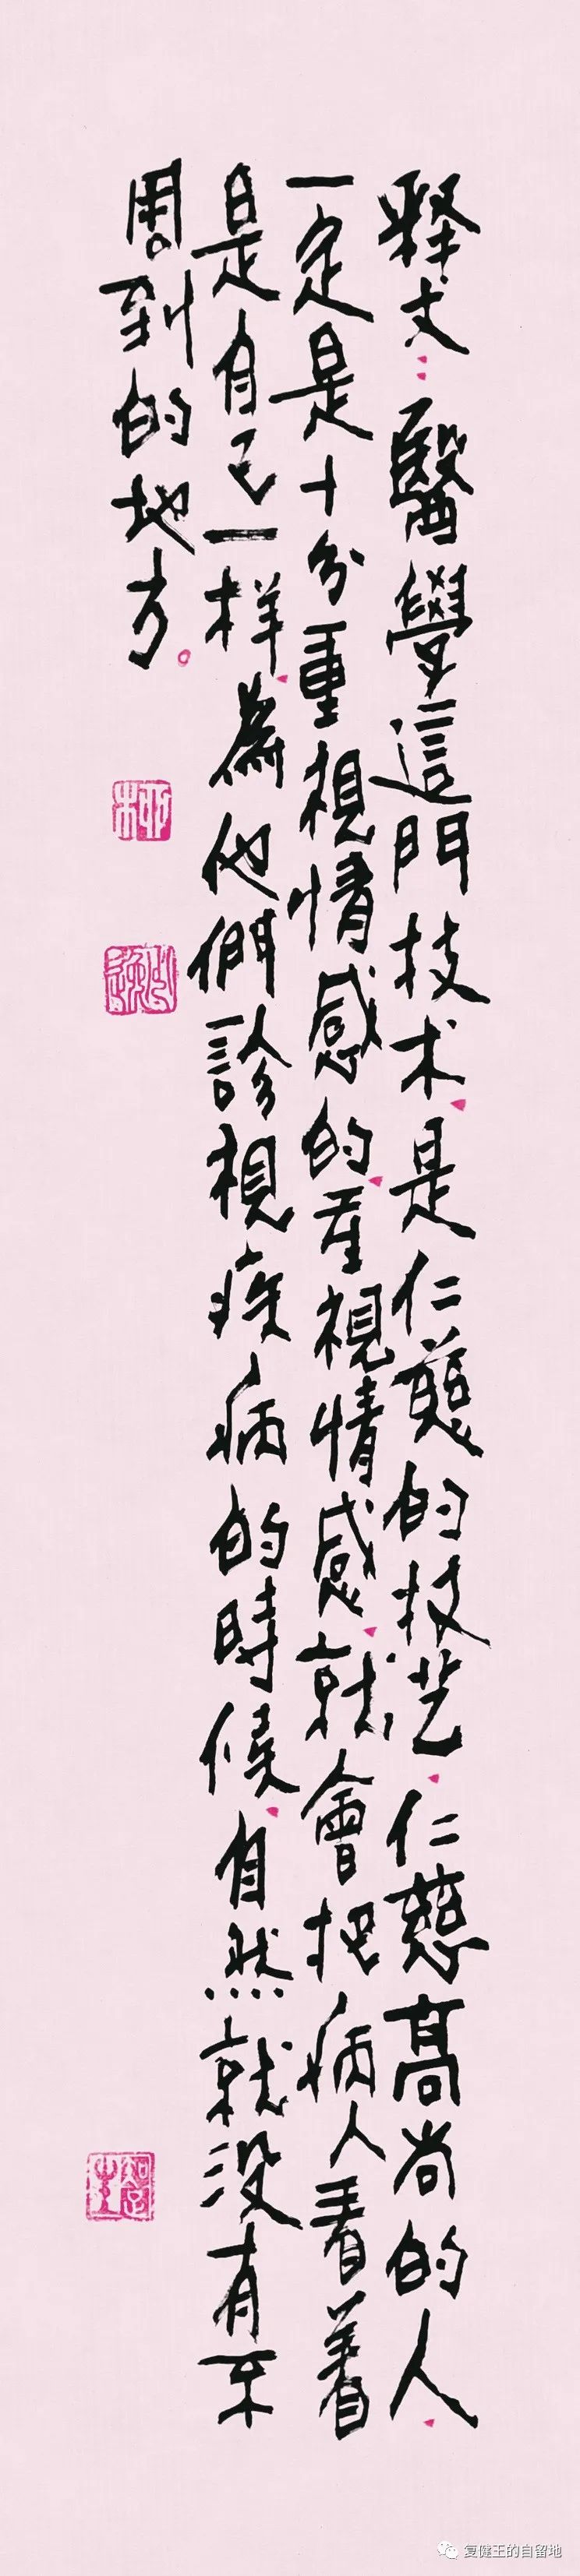 释文：醫學這門技术，是仁慈的技艺，仁慈高尚的人，
一定是十分重視情感的，重視情感，就會把病人看着
是自己一样，為他們診視疾病的時候，自然就没有不
周到的地方。
知足
复健王的自留地